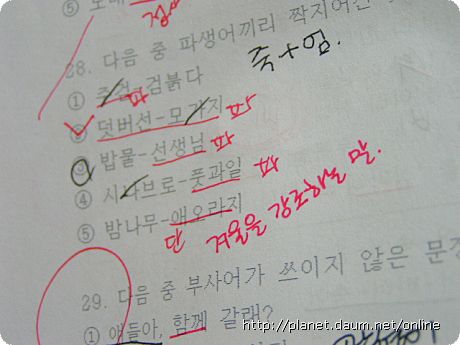 ⑤
28. 다음 중 파생어끼리 짝지어진
죽+엄.
① 주검-검붉다 파
덧버선-모가지 파
밥물-선생님 파
④ 시나브로-풋과일 파
⑤ 밤나무-애오라지
단 강조하는 말.
29. 다음 중 부사어가 쓰이지 않은
① 얘들아, 함께 갈래?
http://planet.daum.net/online